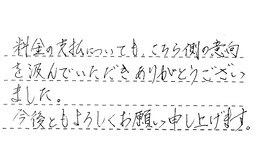 料金の支払についても、こちら側の意向
を汲んでいただきありがとうござい
ました。
今後ともよろしくお願い申し上げます。